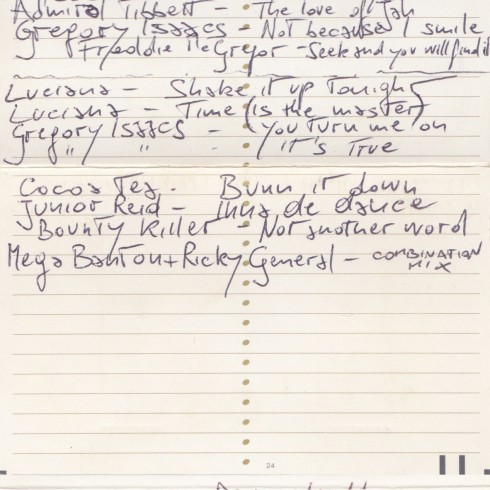 Admiral Tibbett - The love of Jah
Gregory Isaacs - Not because I smile
Freddie McGregor - Seek and you will find it
Luciana - Shake it up Tonight
Luciana - Time (is the master)
Gregory Isaacs - You Turn me on
" " - It's True
Cocoa Tea - Bunn it down
Junior Reid - Inna de dance
Bounty Killer - Not another word
Mega Banton + Ricky General - COMBINATION
MIX
24